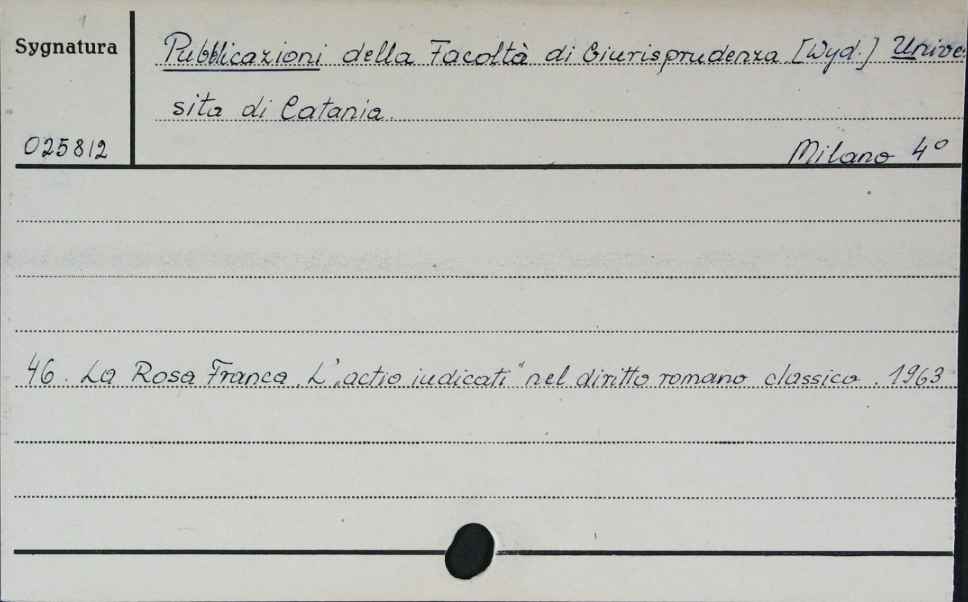 Sygnatura
Pubblicazioni della Facoltà di Giurisprudenza [Wyd.] Univer
sita di Catania.
025812
Milano 4°
46. La Rosa Franca. L'„actio iudicati" nel diritto romano classico. 1963